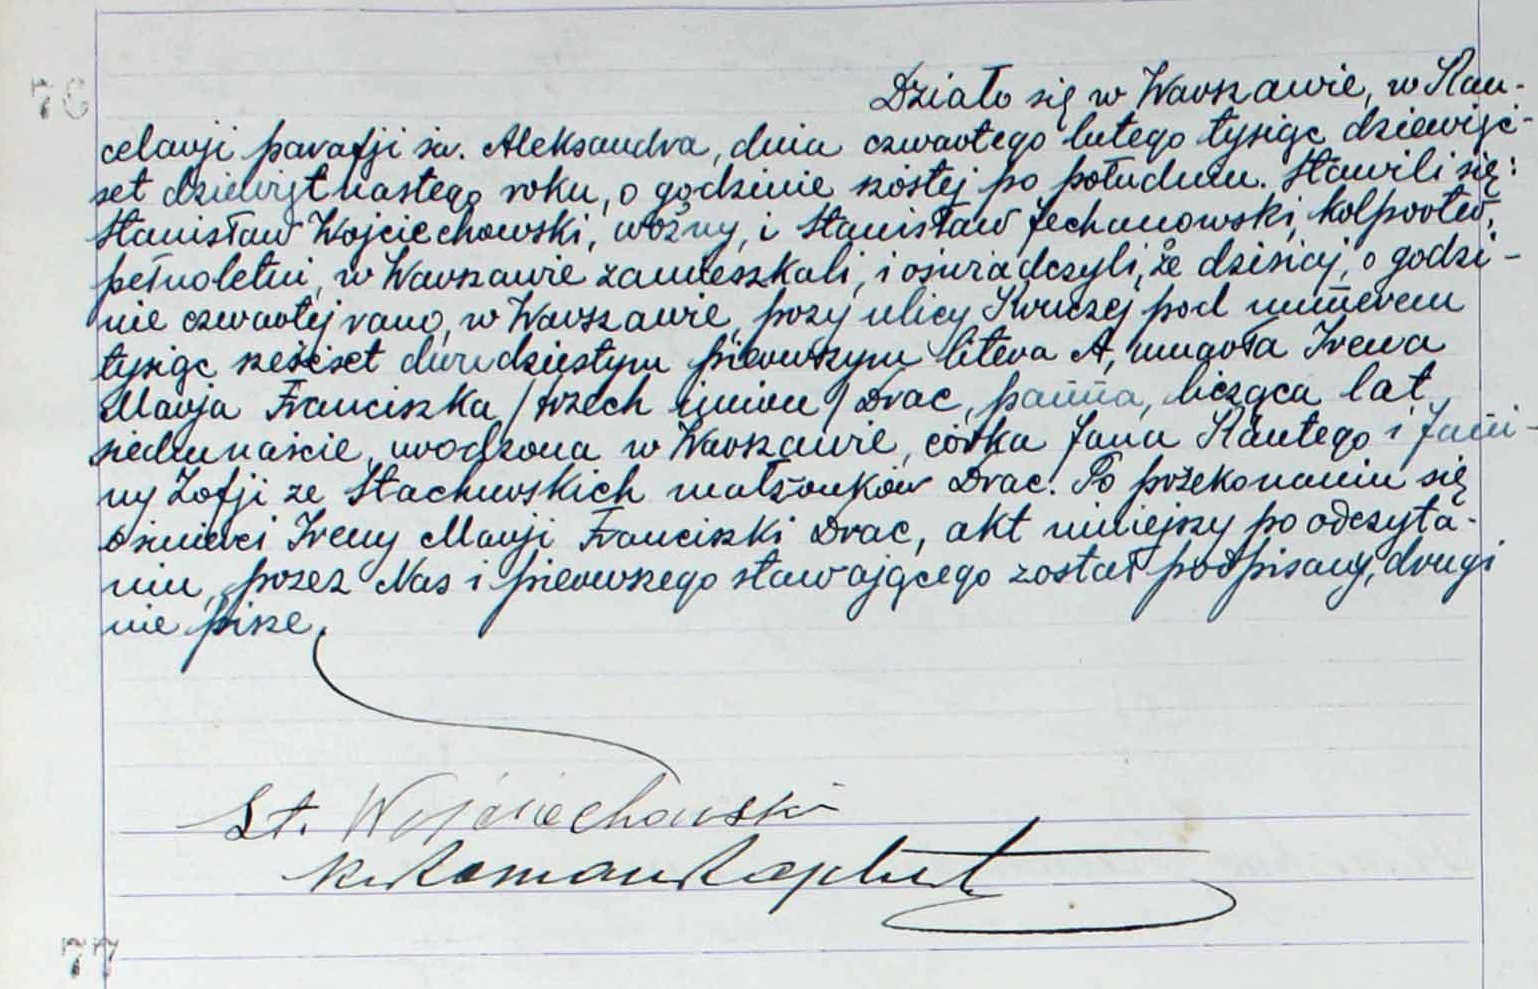 76
Działo się w Warszawie, w Kan-
celarji parafji św. Aleksandra, dnia czwartego lutego tysiąc dziewięć-
set dziewiętnastego roku, o godzinie szóstej po południu. Stawili się:
Stanisław Wojciechowski, woźny, i Stanisław Jechanowski, kolporter,
pełnoletni, w Warszawie zamieszkali, i oświadczyli, że dzisiaj, o godzi-
nie czwartej rano, w Warszawie, przy ulicy Kruczej pod numerem
tysiąc sześćset dwudziestym pierwszym litera A, umarła Irena
Marja Franciszka /trzech imion/ Drac, panna, licząca lat
siedmnaście, urodzona w Warszawie, córka Jana Kantego i Jani-
ny Zofji ze Stachurskich małżonków Drac. Po przekonaniu się
o śmierci Ireny Marji Franciszki Drac, akt niniejszy po odczyta-
niu, przez Nas i pierwszego stawającego został podpisany, drugi
nie pisze.
St. Wojciechowski
K. Roman
77